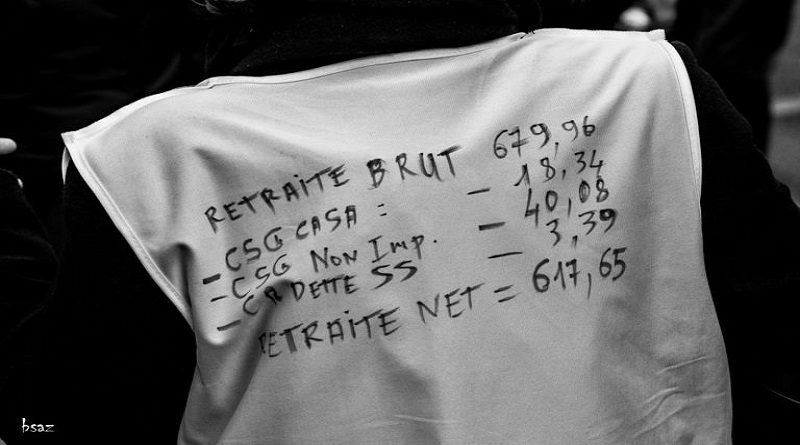 RETRAITE BRUT 679,96
- CSG CASA : - 18,34
- CSG NON Imp. - 40,08
- CR DETTE SS - 3,39
RETRAITE NET = 617,65
bsaz